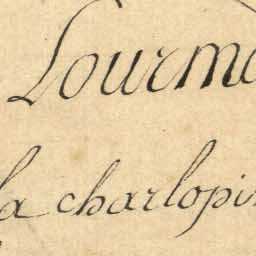 Lourm
la charlopi